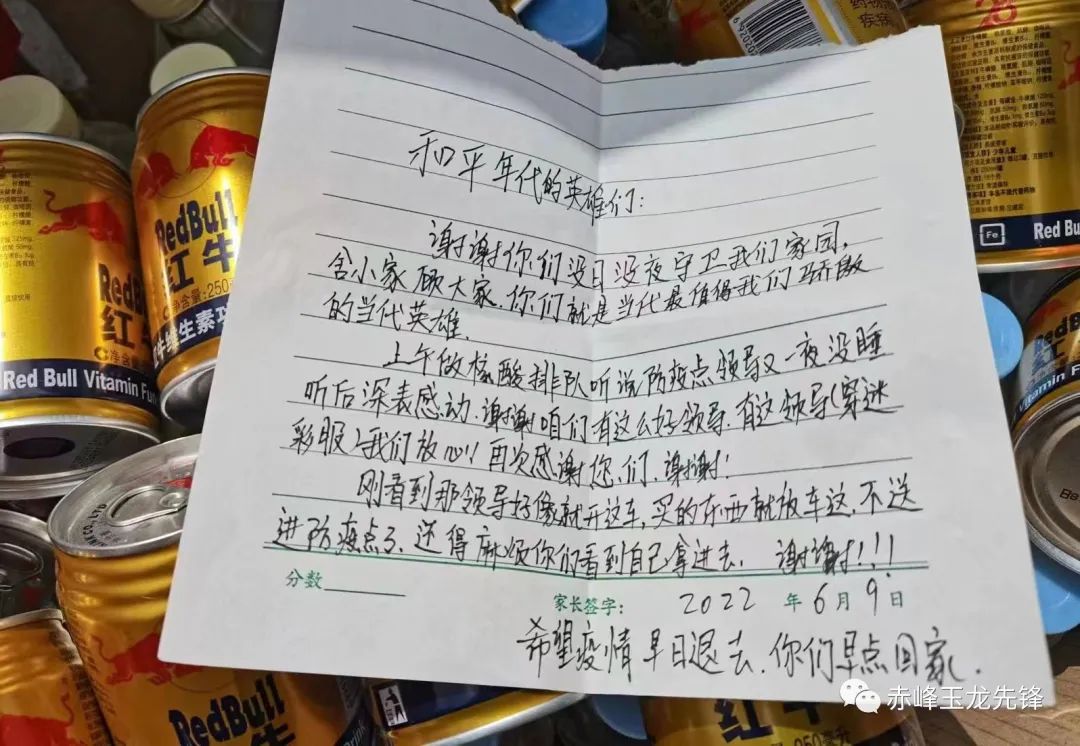 和平年代的英雄们:
谢谢你们没日没夜守卫我们家园,
舍小家顾大家.你们就是当代最值得我们骄傲
的当代英雄.
上午做核酸排队听说防疫点领导又一夜没睡
听后深表感动.谢谢咱们有这么好领导.有这领导(穿迷
彩服)我们放心!再次感谢你们.谢谢!
刚看到那领导好像就开这车,买的东西就放车这.不送
进防疫点了.还得麻烦你们看到自己拿进去. 谢谢!!!
分数
家长签字: 2022 年6月9日
希望疫情早日退去.你们早点回家.
RedBull
红牛
净含量:250
牛维生素功
RedB
红
净含量
Red Bull Vitamin Fun
药物
疾病
692020
Fe
Red Bull
Vitamin F
RedBull
红牛
RedBull
赤峰玉龙先锋